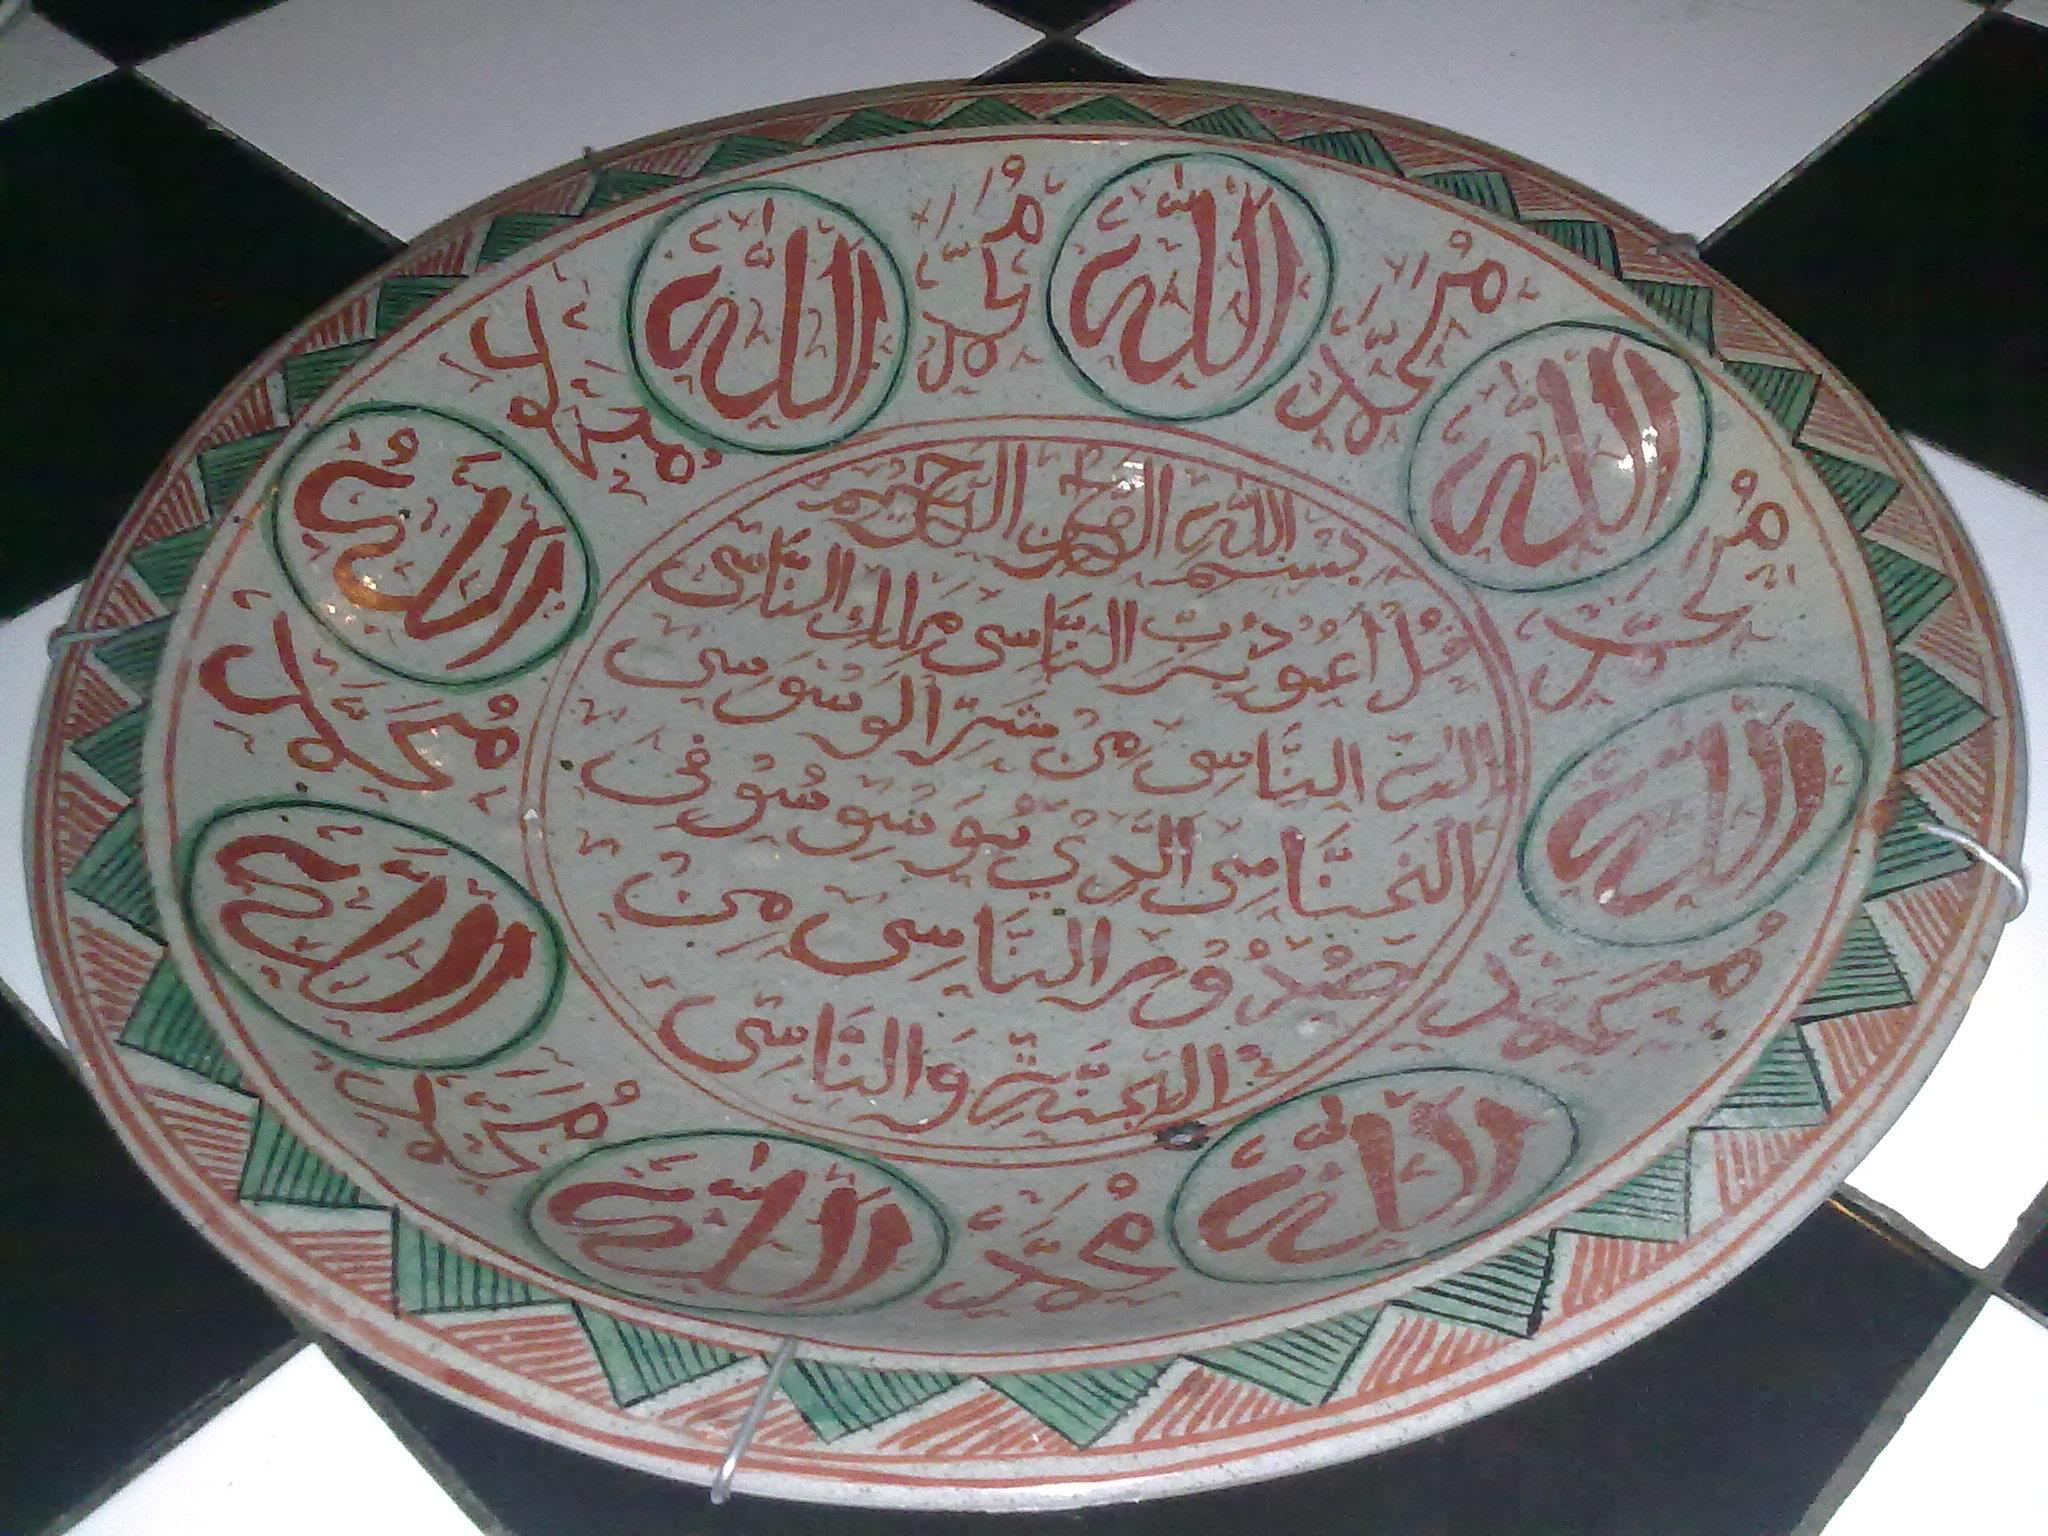 بسم الله الرحمن الرحيم
قل اعوذ برب الناس ملك الناس
اله الناس من شر الوسوس
الخناس الذي يوسوس في
صدور الناس من
الجنة والناس
الله
محمد
الله
محمد
الله
محمد
الله
محمد
الله
محمد
الله
محمد
الله
محمد
الله
محمد